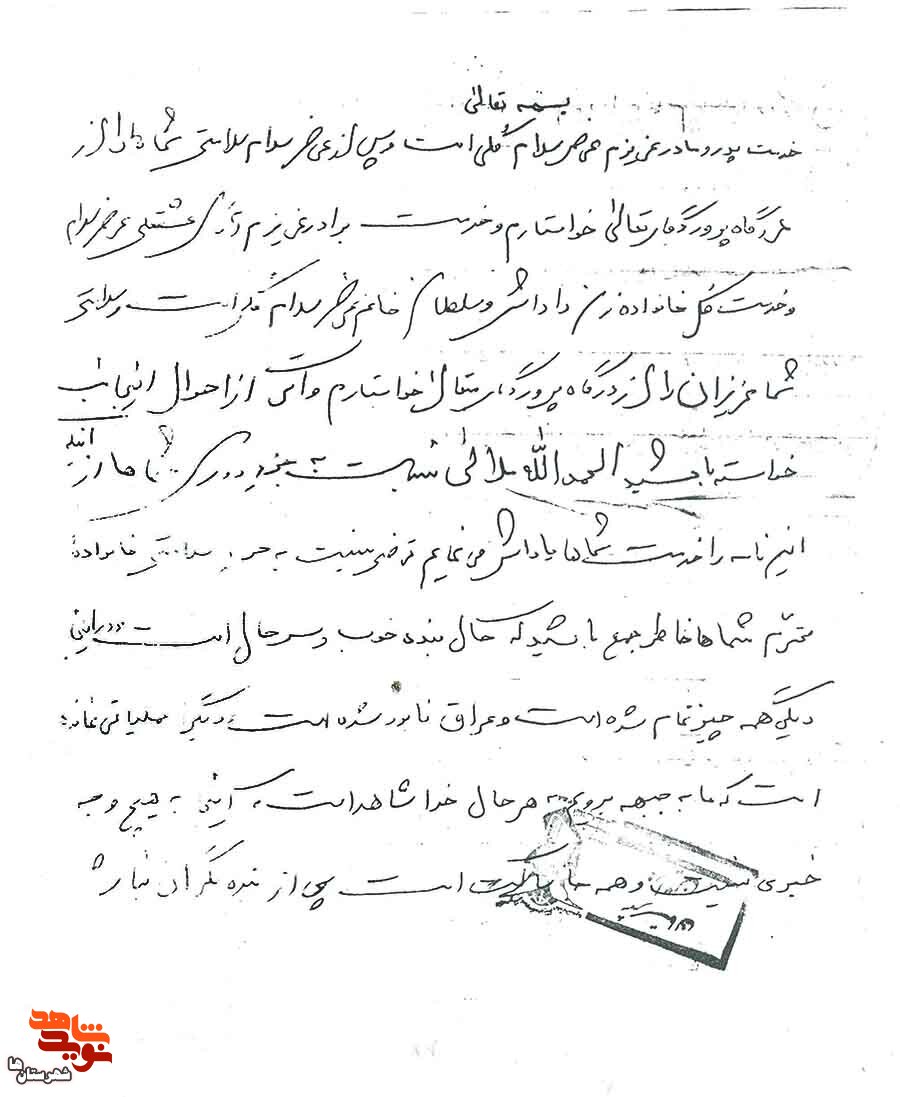 بسمه تعالی
خدمت پدر و مادر عزیزم عرض سلام گلی است و پس از عرض سلام سلامتی شما را از
درگاه پروردگار تعالی خواستارم و خدمت برادر عزیزم عرض سلام
و خدمت کل خانواده زن داداش و سلطان خانم عرض سلام گلی است و سلامتی
شما عزیزان را از درگاه پروردگار متعال خواستارم و اگر از احوال اینجانب
خواسته باشید الحمدالله ملالی نیست به بجز دوری شماها
این نامه را خدمت شماها یاداش می نمایم عرضی نیست به جز سلامتی خانواده
محترم شماها خاطر جمع باشید که حال بنده خوب و سرحال است و در اینجا
دیگر همه چیز تمام شده است و عراق نابود شده است و دیگر عملیاتی نمانده
است که ما به جبهه برویم به هر حال خدا شاهد است که اینجا به هیچ وجه
خبری نیست و همه جا ساکت است پس از بنده نگران نباش
نوید شاهد
شهرستان‌ها